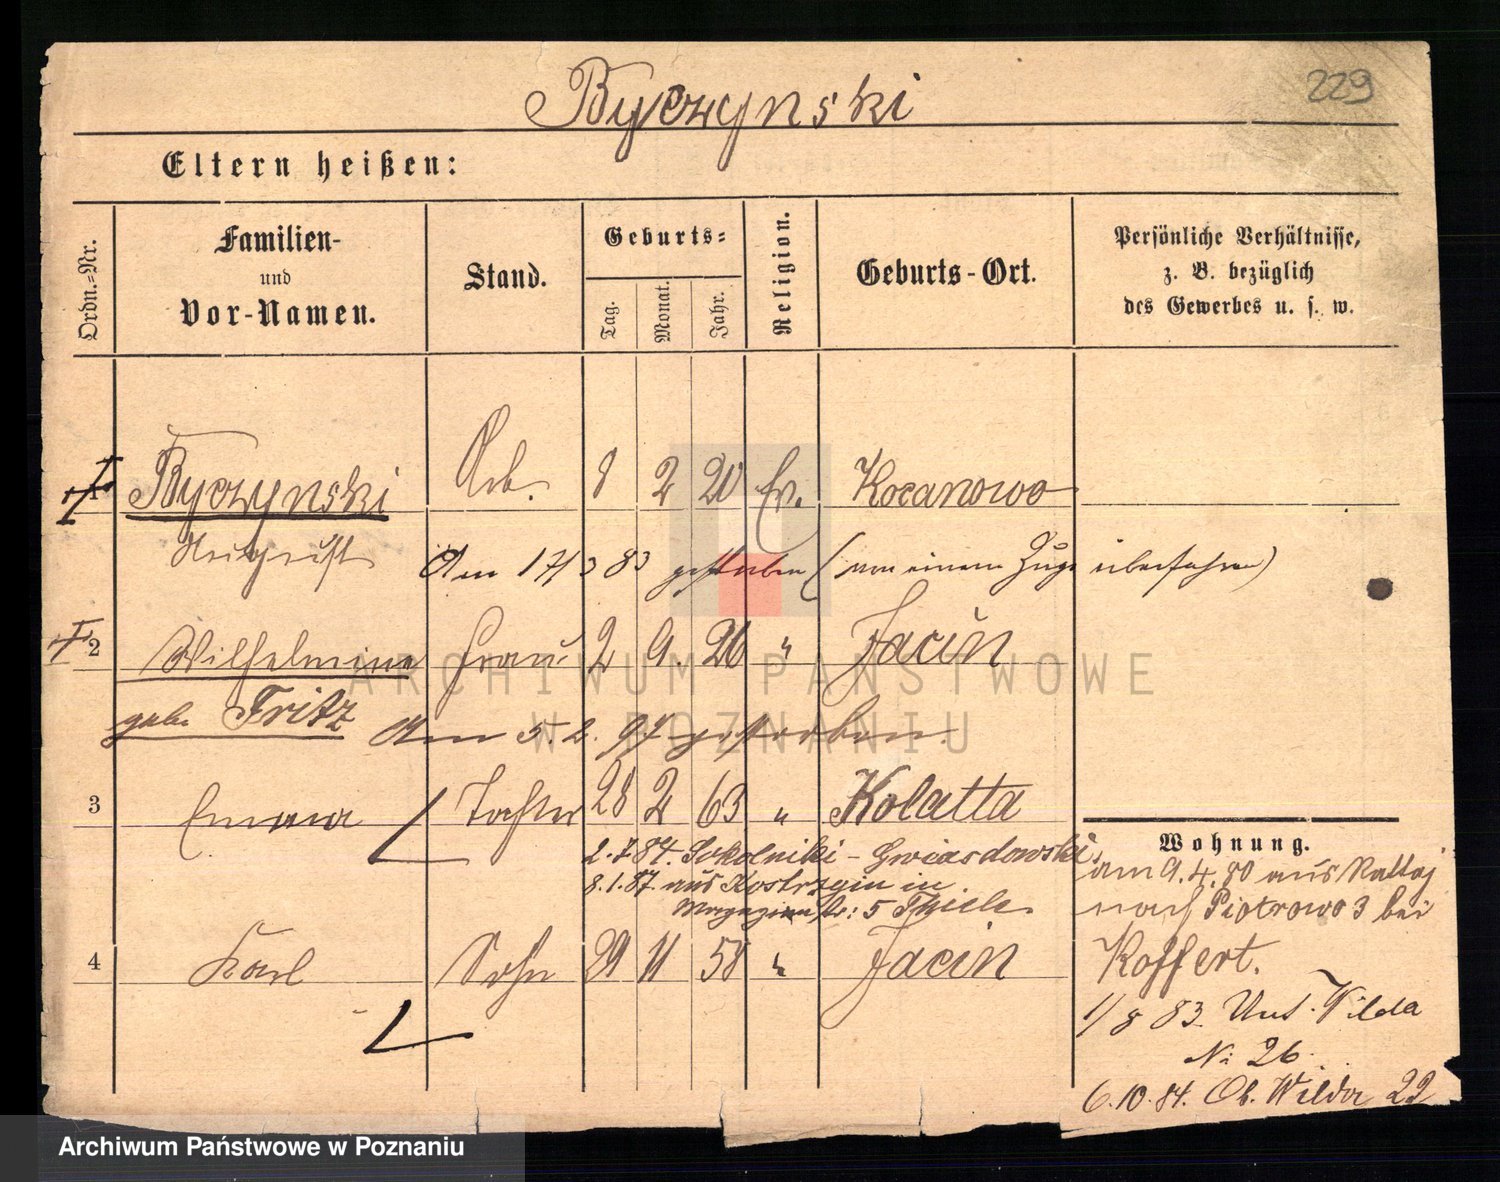 229
Byczynski
Eltern heißen:
Ordn.-Nr.
Familien-
und
Vor-Namen.
Stand.
Geburts-
Tag.
Monat.
Jahr.
Religion.
Geburts-Ort.
Persönliche Verhältnisse,
z. B. bezüglich
des Gewerbes u. s. w.
1 Byczynski Arb. 8 2 20 Ev. Kocanowo
August Am 17/3 83 gestorben (von einem Zuge überfahren)
2 Wilhelmine Frau 2 9. 26 " Jacin
geb. Fritz Am 5. 2. 97 gestorben.
3 Emma Tochter 28 2 63 " Kolatta
2.7.84. Sokolniki - Gwiasdowski
8.1.87. aus Kostrzyn in
Magazinstr: 5 Thiele
4 Karl Sohn 29 11 58 " Jacin
Wohnung.
am 9.4.80 aus Rattaj
nach Piotrowo 3 bei
Koffert.
1/8 83. Unt. Wilda
No 26.
6.10.84. Ob. Wilda 22
ARCHIWUM PAŃSTWOWE
W POZNANIU
Archiwum Państwowe w Poznaniu